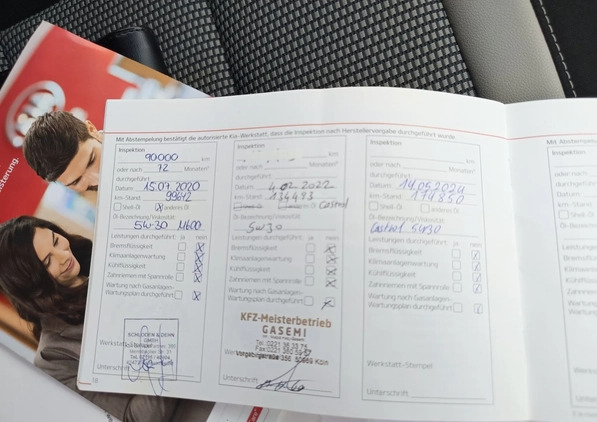 KIA
Mit Abstempelung bestätigt die autorisierte Kia-Werkstatt, dass die Inspektion nach Herstellervorgabe durchgeführt wurde.
Inspektion
90000 km
oder nach 72 Monaten
durchgeführt:
Datum 15.09.2020
km-Stand 99642
Shell-Öl anderes Öl
Öl-Bezeichnung/Viskosität:
5W-30
Leistungen durchgeführt: ja nein
Bremsflüssigkeit
Klimaanlagenwartung
Kühlflüssigkeit
Zahnriemen mit Spannrolle
Wartung nach Gasanlagen-
Wartungsplan durchgeführt
GMBH
Unterschrift
Inspektion
km
oder nach Monaten
durchgeführt:
Datum 4.02.2022
km-Stand 134493
Castrol
Öl-Bezeichnung/Viskosität:
5W30
Leistungen durchgeführt: ja nein
Bremsflüssigkeit
Klimaanlagenwartung
Kühlflüssigkeit
Zahnriemen mit Spannrolle
Wartung nach Gasanlagen-
Wartungsplan durchgeführt
KFZ-Meisterbetrieb
GASEMI
Köln
Unterschrift
Inspektion
km
oder nach Monaten
durchgeführt:
Datum 14.05.2024
km-Stand 174850
Shell-Öl anderes Öl
Öl-Bezeichnung/Viskosität:
Castrol 5W30
Leistungen durchgeführt: ja nein
Bremsflüssigkeit
Klimaanlagenwartung
Kühlflüssigkeit
Zahnriemen mit Spannrolle
Wartung nach Gasanlagen-
Wartungsplan durchgeführt
Werkstatt-Stempel
Unterschrift
Mit Abst
Inspektio
oder nach
durchgefü
Datum
km-Stand
Öl-Bezeich
Leistungen
Bremsflüss
Klimaanlage
Kühlflüssigk
Zahnriemen
Wartung nac
Wartungspla